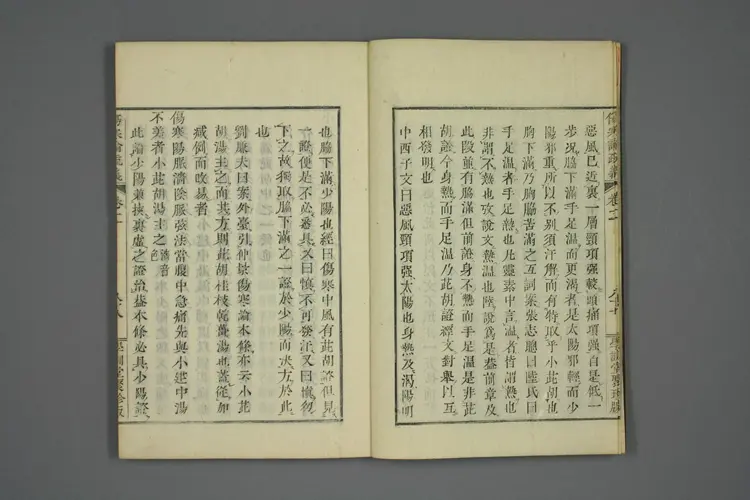 惡風已近裏一層頸項强較頭痛項强自是低一
步況脇下滿手足溫而更渴者是太陽邪輕而少
陽邪重所以不別須汗解而有特取乎小茈胡也
脅下滿乃胸脇苦滿之互詞案張志聰曰陸氏曰
手足溫者手足熱也凡靈素中言溫者皆謂熱也
非謂不熱也攷說文熱溫也陸說爲是葢前章及
此段並有脇滿但前證身不熱而手足溫是非茈
胡證今身熱而手足溫乃茈胡證擇文對舉以互
相發明也
中西子文曰惡風頸項强太陽也身熱及渴陽明
也脇下滿少陽也經曰傷寒中風有茈胡證但見
一證便是不必悉具又曰愼不可發汗又曰愼勿
下之故獨取脇下滿之一證於少陽而決方於此
也
劉廉夫曰案外臺引仲景傷寒論本條亦云小茈
胡湯主之而其方則茈胡桂枝乾薑湯也葢從加
減例而改易者
傷寒陽脈濇陰脈弦法當腹中急痛先與小建中湯
不差者小茈胡湯主之
此論少陽兼挾裏虛之證治葢本條必具少陽證